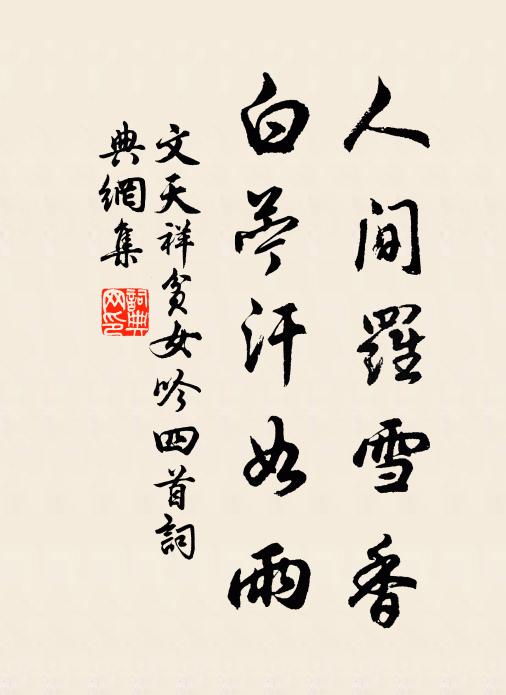 人間羅雪香
白苧汗如雨
文天祥貧女吟四首詞
典網集
詞典網印